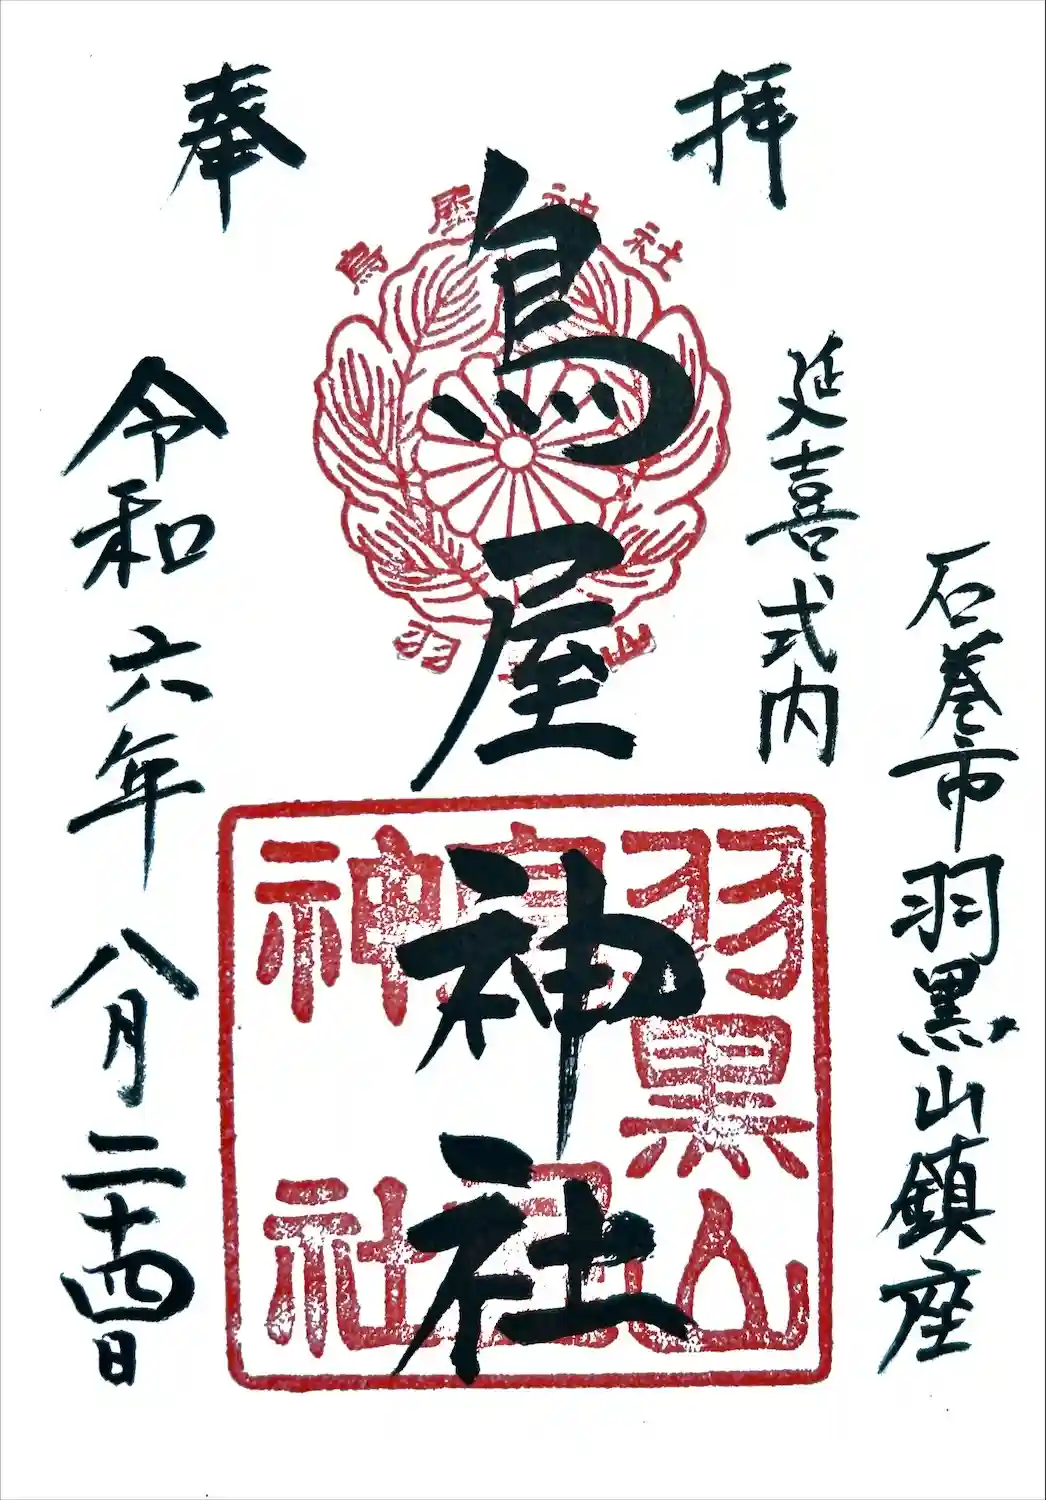 奉拝
石巻市羽黒山鎮座
延喜式内
鳥屋神社
令和六年八月二十四日
鳥屋神社
羽 山
羽黒山
鳥屋
神社